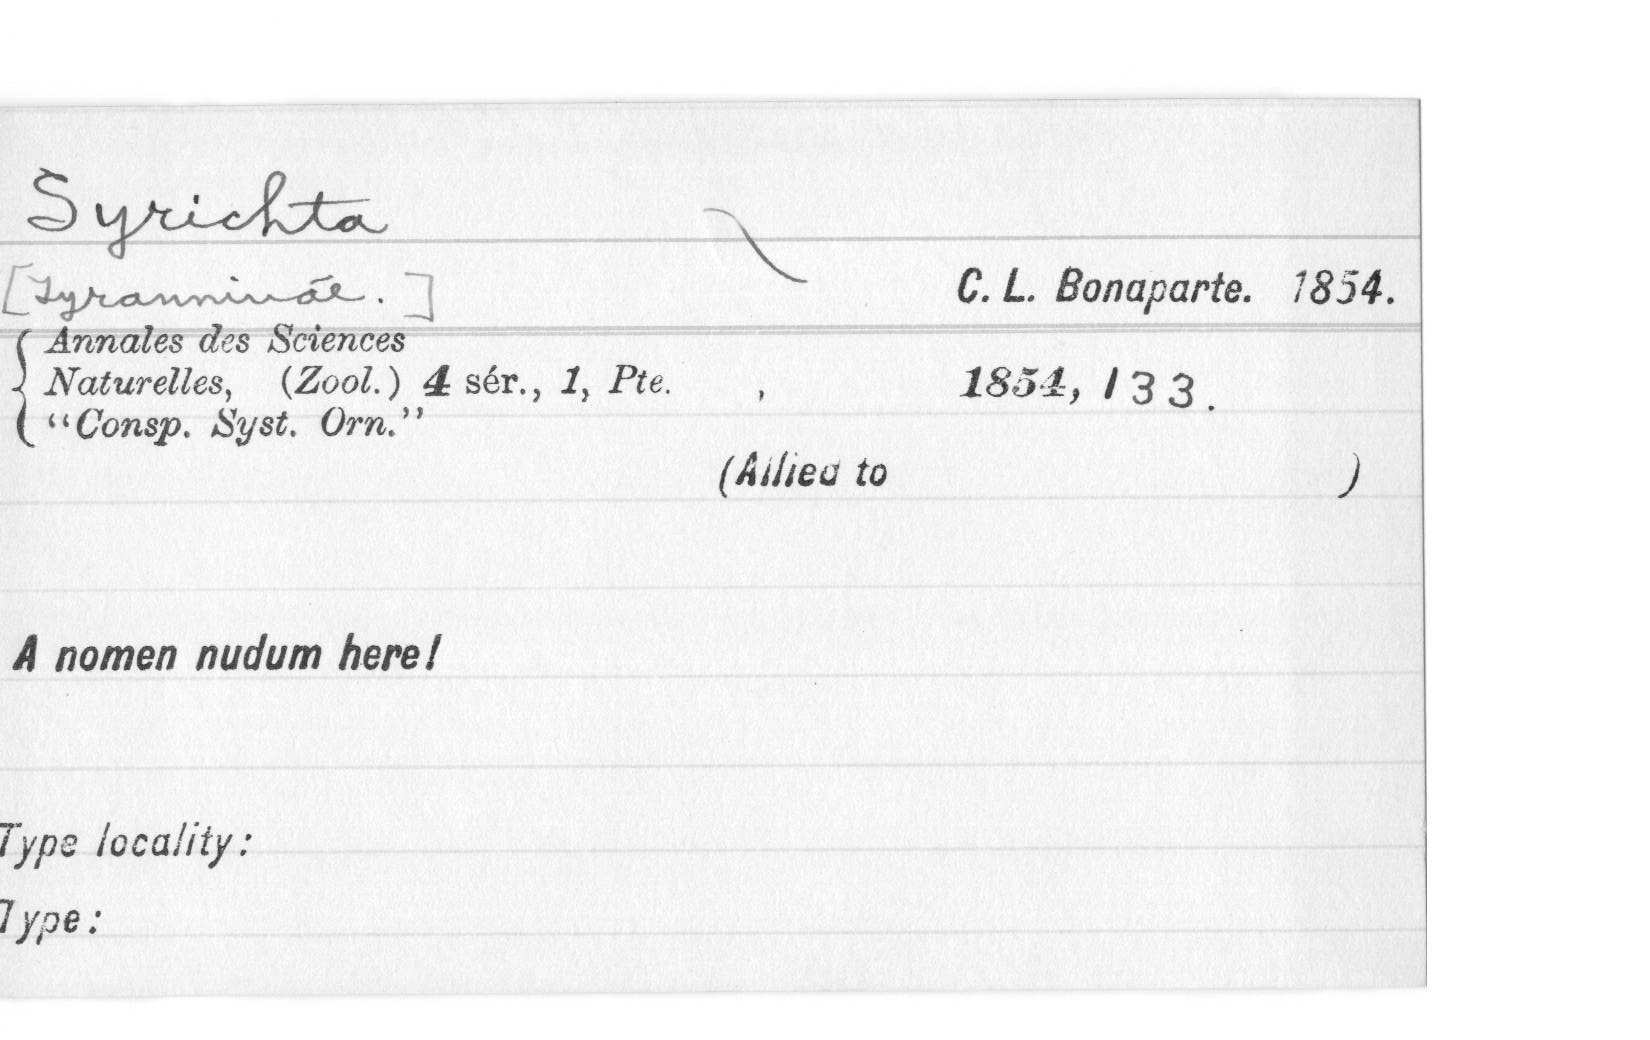 Syrichta
[Tyranninae.]
C. L. Bonaparte. 1854.
Annales des Sciences
Naturelles, (Zool.) 4 sér., 1, Pte. , 1854, 133.
"Consp. Syst. Orn."
(Allied to )
A nomen nudum here!
Type locality:
Type: